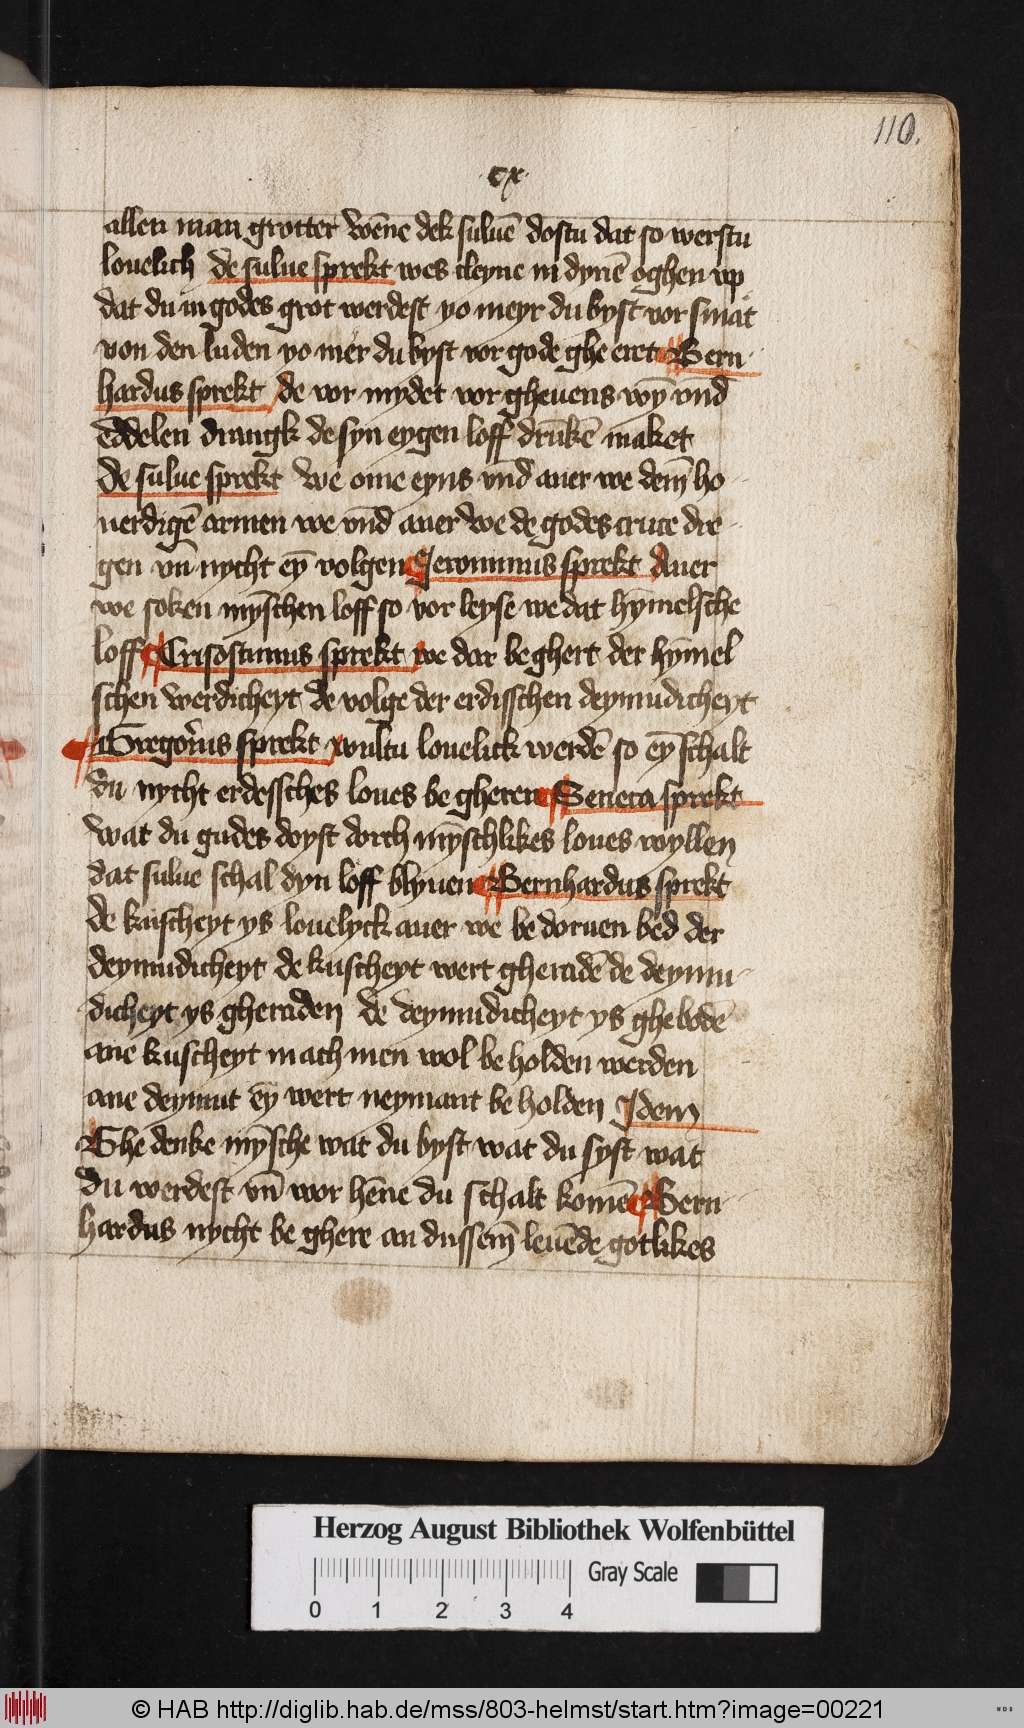 110.
cx
allen man grotter wēne dek suluē dostu dat so werstu
louelich de sulue sprekt wes cleyne in dynē oghen vp
dat du in godes grot werdest yo meyr du byst vor smat
von den luden yo mer du byst vor gode ghe eret Bern
hardus sprekt de vor mydet vor gheuens wȳ vnd
eddelen drangk de syn eygen loff drūkē maket
de sulue sprekt we ome eyns vnd auer we dem ho
uerdigē armen we vnd auer we de godes cruce dre
gen vn̄ nycht eȳ volgen Jeronimus sprekt Auer
we soken mȳschen loff so vor leyse we dat hȳmelsche
loff Crisostimus sprekt we dar be ghert der hȳmel
schen werdicheyt de volge der erdisschen deymudicheyt
Gregorius sprekt wultu louelick werdē so eȳ schalt
du nycht erdessches loues be gheren Seneca sprekt
wat du gudes doyst dorch mȳschlikes loues wyllen
dat sulue schal dyn loff blyuen Bernhardus sprekt
de kuscheyt ys louelyck auer we be doruen bed der
deymudicheyt de kuscheyt wert gheradē de deymu
dicheyt ys gheraden de deymudicheyt ys ghe bodē
ane kuscheyt mach men wol be holden werden
ane deymut eȳ wert neymant be holden Jdem
Ghe denke mȳsche wat du byst wat du syst wat
du werdest vn̄ wor hēne du schalt komē Bern
hardus nycht be ghere an dussem leuēde gotlikes
Herzog August Bibliothek Wolfenbüttel
Gray Scale
0 1 2 3 4
© HAB http://diglib.hab.de/mss/803-helmst/start.htm?image=00221